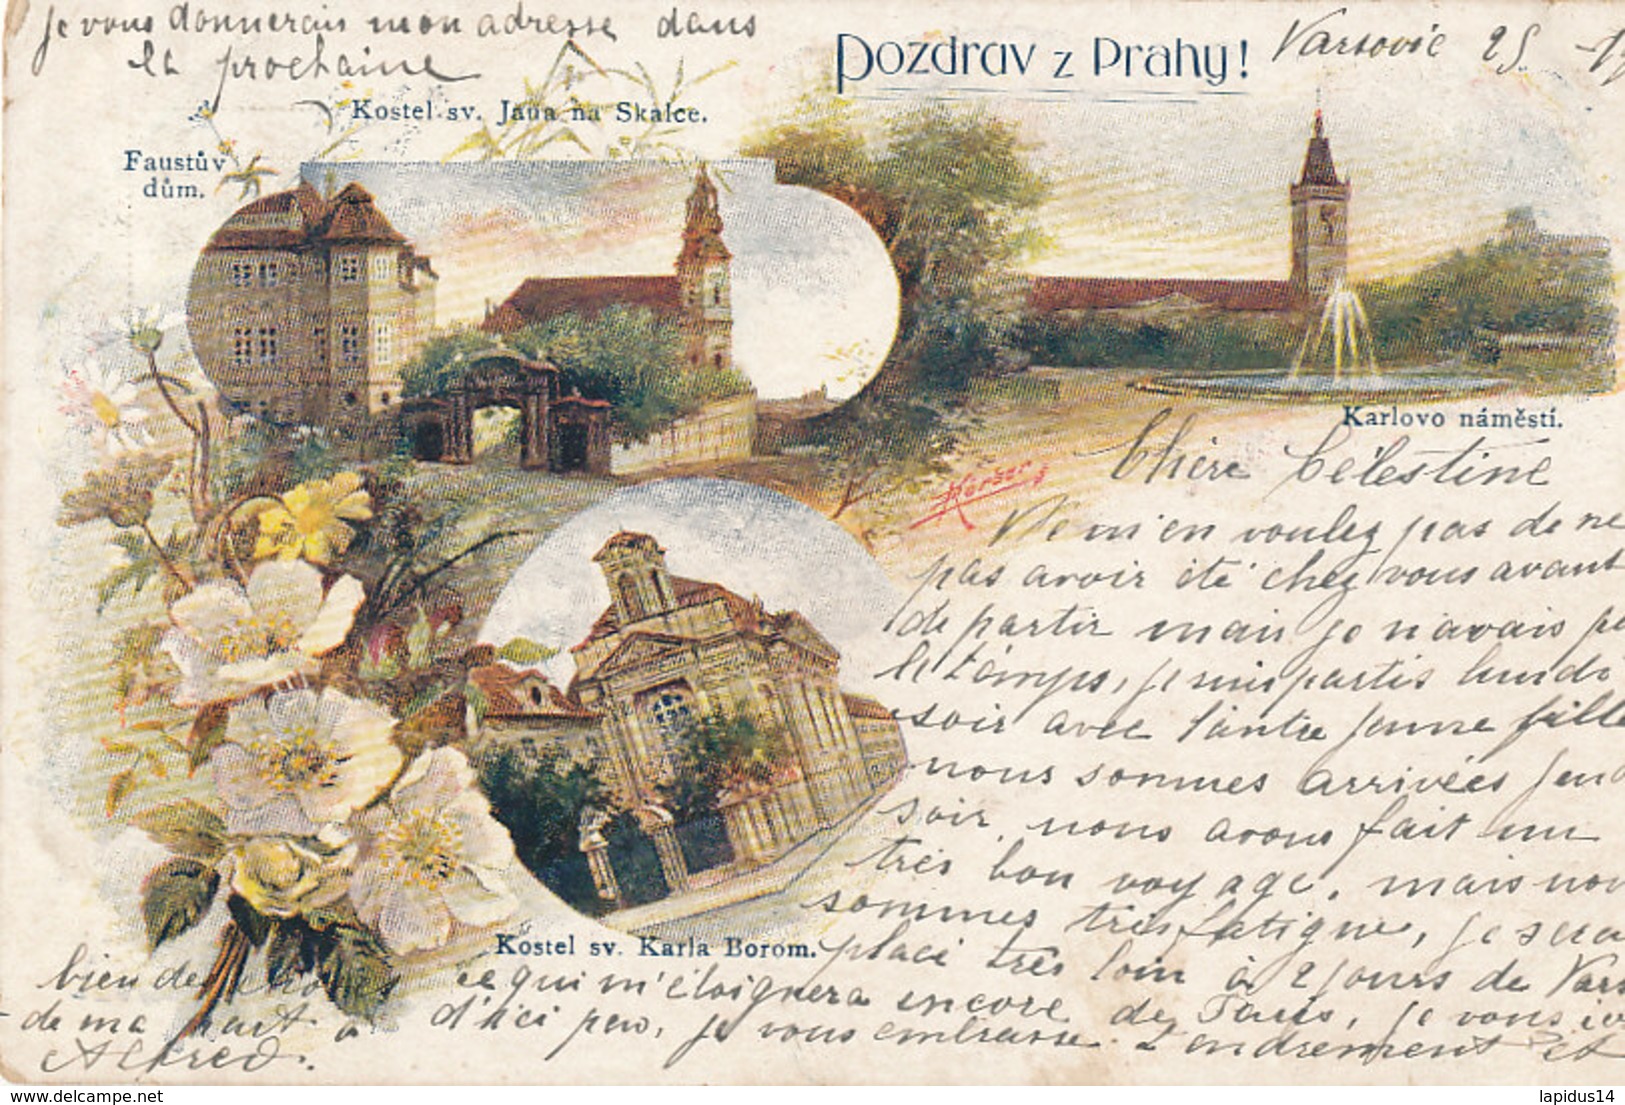 je vous donnerais mon adresse dans
la prochaine
Pozdrav z Prahy!
Varsovie 25
Kostel sv. Jana na Skalce.
Faustův
dům.
Karlovo náměstí.
Chère Célestine
Ne m'en voulez pas de ne
pas avoir été chez vous avant
de partir mais je n'avais
le temps, je suis partis lundi
soir avec l'autre jeune fille
nous sommes arrivées
soir, nous avons fait un
très bon voyage, mais nou
sommes très fatigue, je sera
Kostel sv. Karla Borom.
placé très loin à 2 jours de Vars
ce qui m'éloignera encore de Paris, je vous
d'ici peu, je vous embrasse tendrement et
bien des choses
de ma part à
Alfred.
delcampe.net
lapidus14